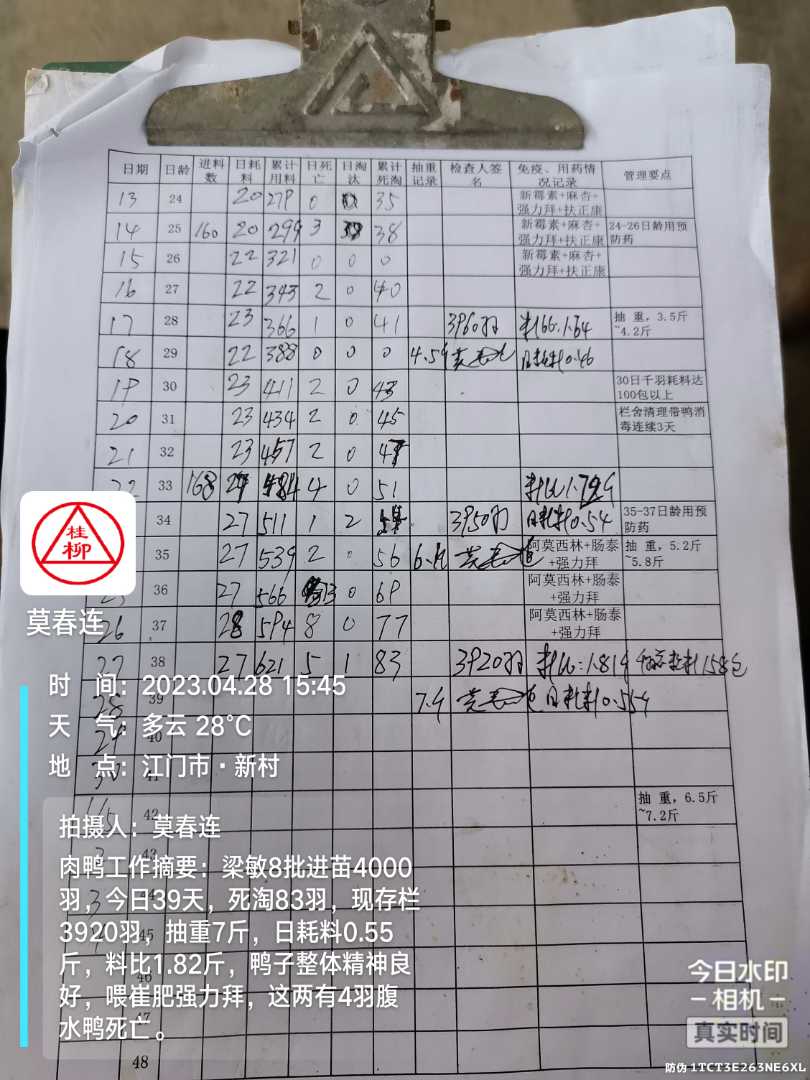 日期 日龄 进料数 日耗料 累计用料 日死亡 日淘汰 累计死淘 抽重记录 检查人签名 免疫、用药情况记录 管理要点
13 24 20 279 0 35 新霉素+麻杏+强力拜+扶正康
14 25 160 20 299 3 38 新霉素+麻杏+强力拜+扶正康 24-26日龄用预防药
15 26 22 321 0 0 0 新霉素+麻杏+强力拜+扶正康
16 27 22 343 2 0 40
17 28 23 366 1 0 41 3960羽 抽 重，3.5斤~4.2斤
18 29 22 388 0 0 0
19 30 23 411 2 0 43 30日千羽耗料达100包以上
20 31 23 434 2 0 45 栏舍清理带鸭消毒连续3天
21 32 23 457 2 0
22 33 168 4 0 51
34 27 511 1 2 3950羽 日耗料0.54 35-37日龄用预防药
35 27 539 2 0 56 阿莫西林+肠泰+强力拜 抽 重，5.2斤~5.8斤
36 27 566 0 69 阿莫西林+肠泰+强力拜
26 37 28 594 8 0 77 阿莫西林+肠泰+强力拜
27 38 27 621 5 1 83 3920羽
28 39
29 40
30 41
42 抽 重，6.5斤~7.2斤
48
桂柳
莫春连
时 间：2023.04.28 15:45
天 气：多云 28°C
地 点：江门市·新村
拍摄人：莫春连
肉鸭工作摘要：梁敏8批进苗4000
羽，今日39天，死淘83羽，现存栏
3920羽，抽重7斤，日耗料0.55
斤，料比1.82斤，鸭子整体精神良
好，喂崔肥强力拜，这两有4羽腹
水鸭死亡。
今日水印
相机
真实时间
防伪 1TCT3E263NE6XL